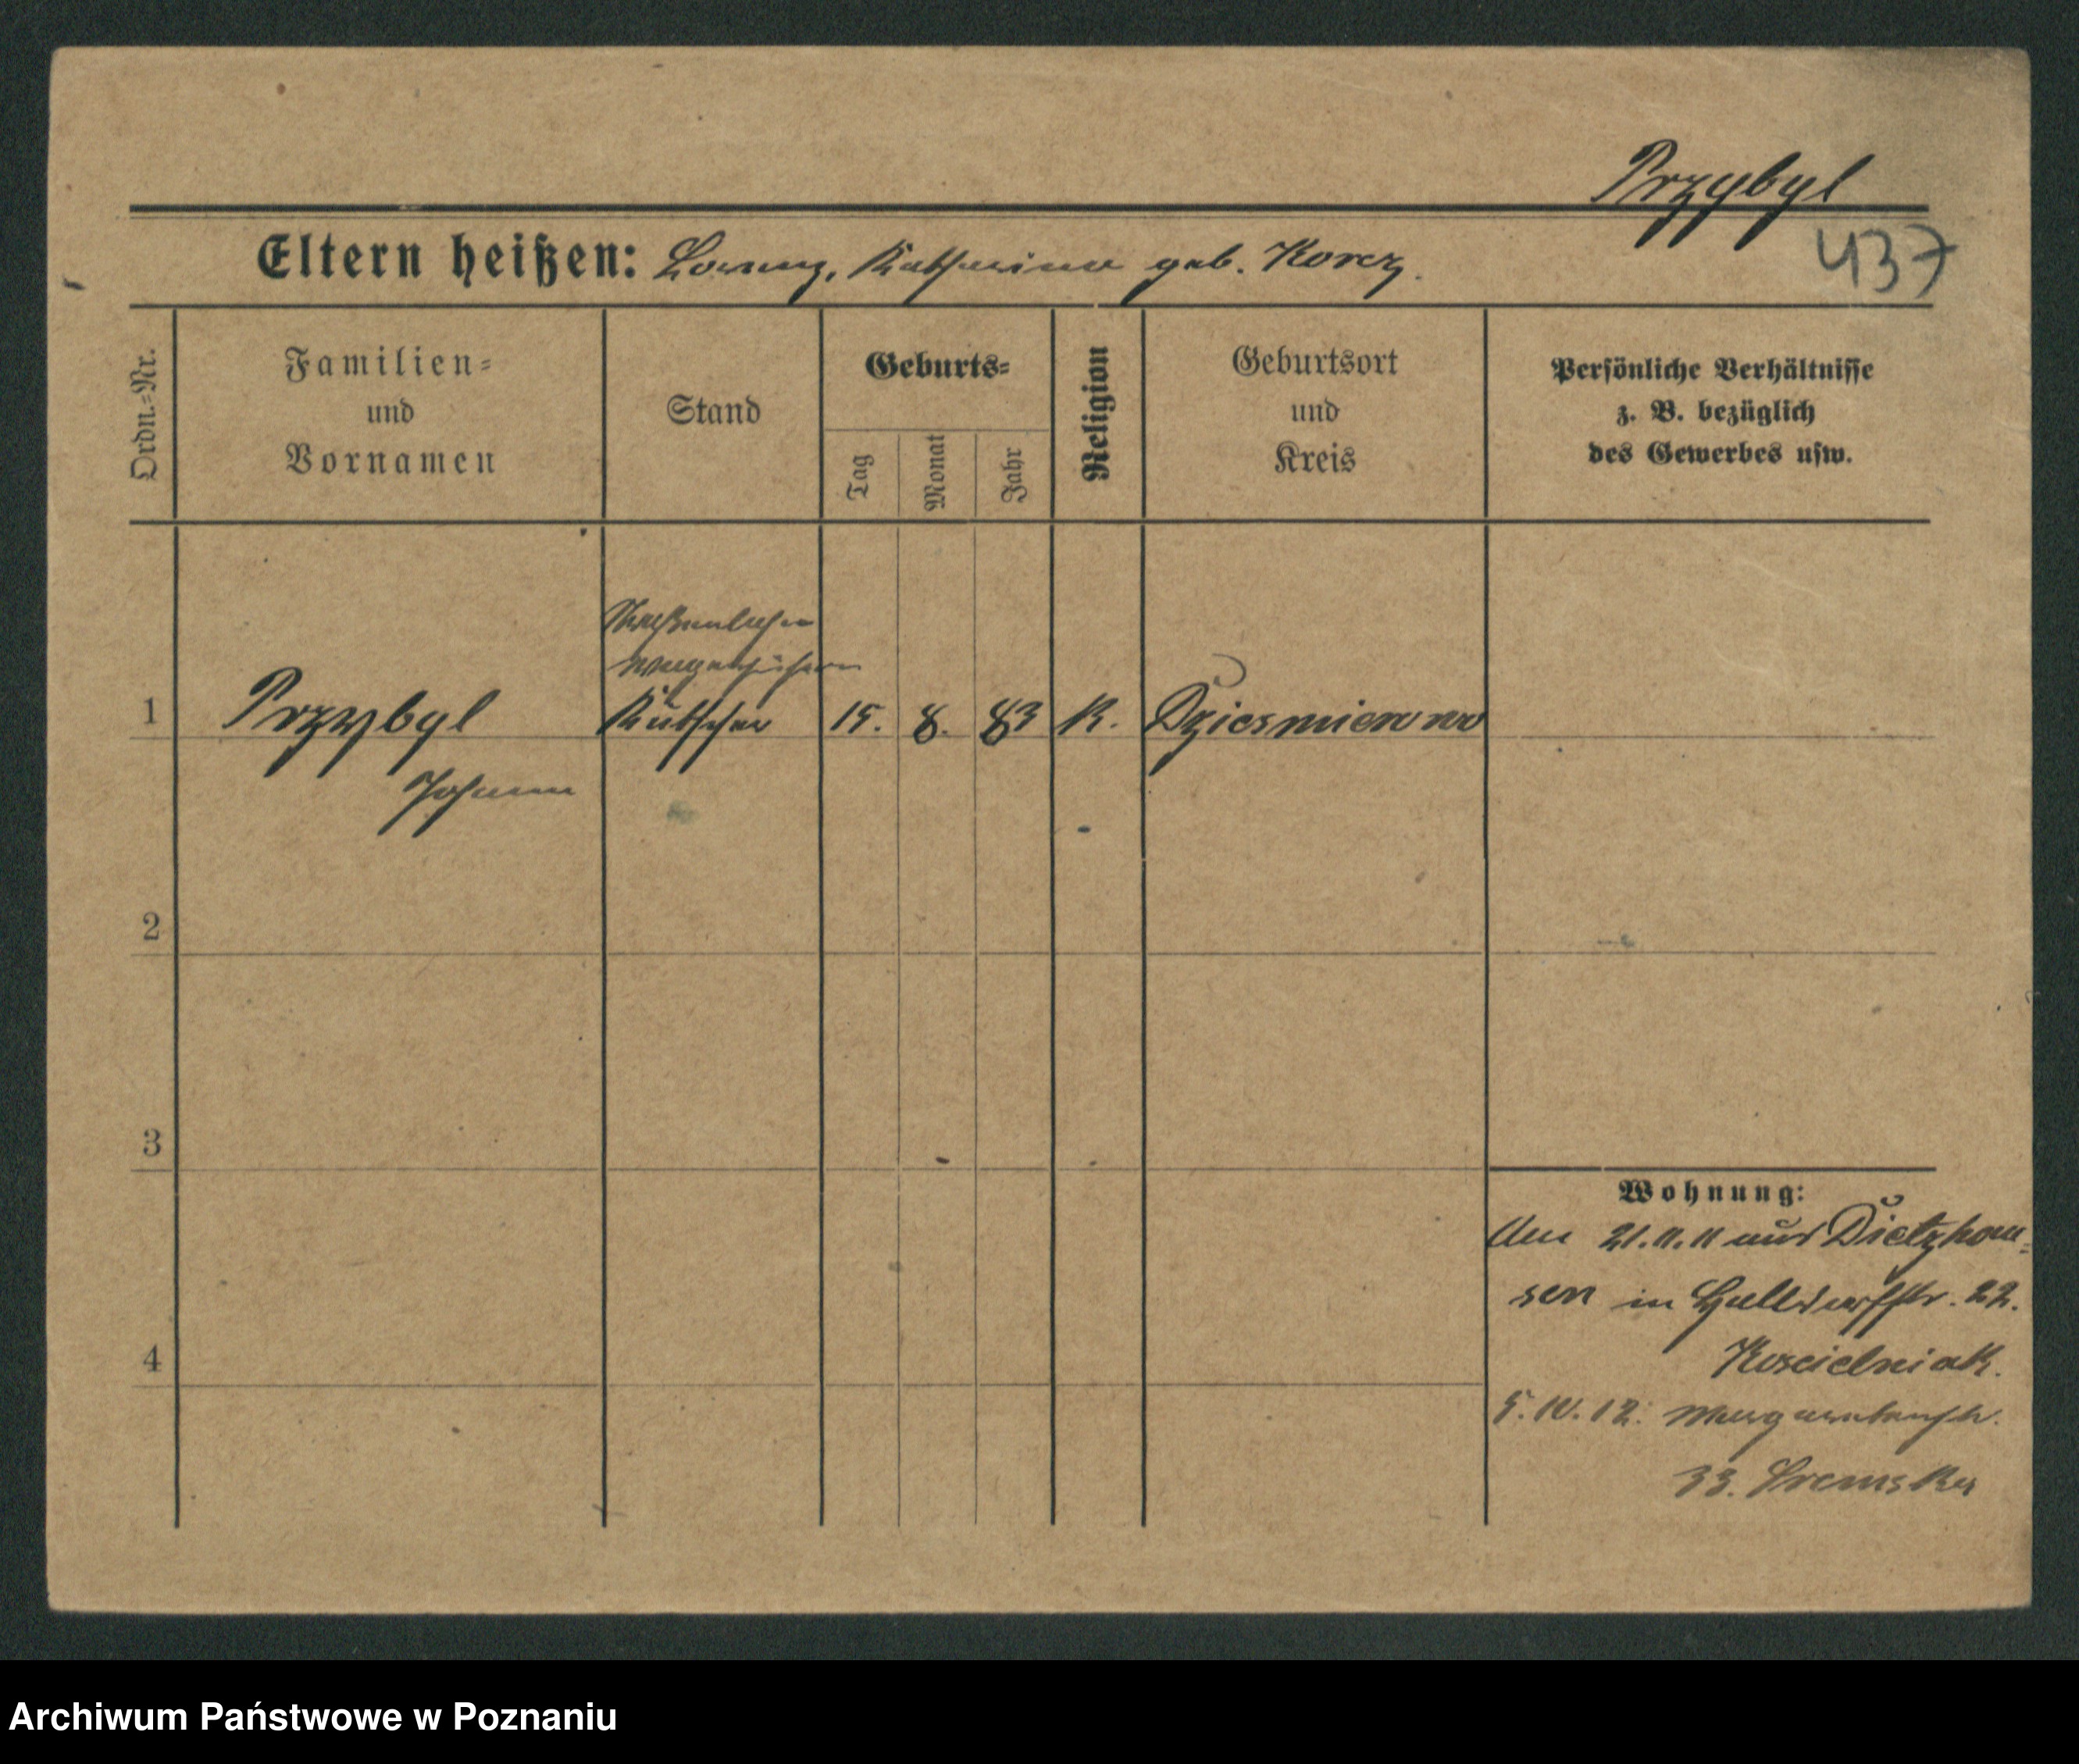 Przybyl
437
Eltern heißen: Lorenz, Katharina geb. Korcz.
Ordn.=Nr.
Familien=
und
Vornamen
Stand
Geburts=
Tag
Monat
Jahr
Religion
Geburtsort
und
Kreis
Persönliche Verhältnisse
z. B. bezüglich
des Gewerbes usw.
Straßenbahn
wagenführer
1 Przybyl Kutscher 15. 8. 83 K. Dziesmierowo
Johann
2
3
4
Wohnung:
Am 21.11.11 aus Dietzhau=
sen in Halldorffstr. 22.
Koscielniak.
5.10.12. Margaretenstr.
33. Sremska
Archiwum Państwowe w Poznaniu